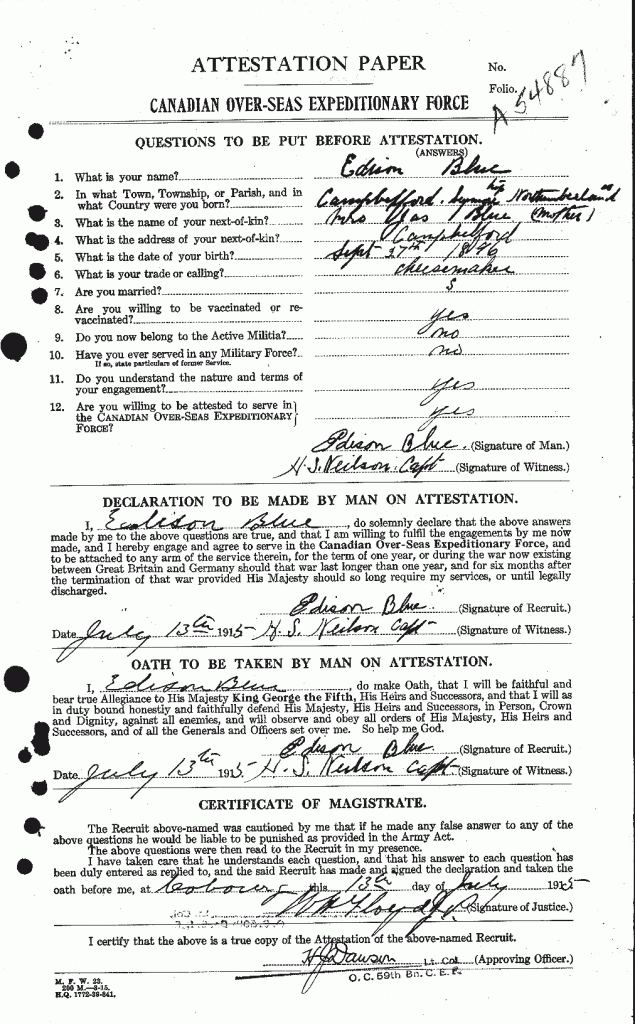 ATTESTATION PAPER
No.
Folio.
A 54887
CANADIAN OVER-SEAS EXPEDITIONARY FORCE
QUESTIONS TO BE PUT BEFORE ATTESTATION.
(ANSWERS)
1. What is your name? Edison Blue
2. In what Town, Township, or Parish, and in what Country were you born? Campbellford. Northumberland
3. What is the name of your next-of-kin? Mrs Blue (mother)
4. What is the address of your next-of-kin? Campbellford
5. What is the date of your birth? Sept 27th 1896
6. What is your trade or calling? cheesemaker
7. Are you married? S
8. Are you willing to be vaccinated or re-vaccinated? yes
9. Do you now belong to the Active Militia? no
10. Have you ever served in any Military Force? no
If so, state particulars of former Service.
11. Do you understand the nature and terms of your engagement? yes
12. Are you willing to be attested to serve in the CANADIAN OVER-SEAS EXPEDITIONARY FORCE? yes
Edison Blue. (Signature of Man.)
H. S. Neilson. Capt (Signature of Witness.)
DECLARATION TO BE MADE BY MAN ON ATTESTATION.
I, Edison Blue, do solemnly declare that the above answers
made by me to the above questions are true, and that I am willing to fulfil the engagements by me now
made, and I hereby engage and agree to serve in the Canadian Over-Seas Expeditionary Force, and
to be attached to any arm of the service therein, for the term of one year, or during the war now existing
between Great Britain and Germany should that war last longer than one year, and for six months after
the termination of that war provided His Majesty should so long require my services, or until legally
discharged.
Edison Blue. (Signature of Recruit.)
Date July 13th 1915 H. S. Neilson Capt (Signature of Witness.)
OATH TO BE TAKEN BY MAN ON ATTESTATION.
I, Edison Blue, do make Oath, that I will be faithful and
bear true Allegiance to His Majesty King George the Fifth, His Heirs and Successors, and that I will as
in duty bound honestly and faithfully defend His Majesty, His Heirs and Successors, in Person, Crown
and Dignity, against all enemies, and will observe and obey all orders of His Majesty, His Heirs and
Successors, and of all the Generals and Officers set over me. So help me God.
Edison Blue (Signature of Recruit.)
Date July 13th 1915. H. S. Neilson Capt (Signature of Witness.)
CERTIFICATE OF MAGISTRATE.
The Recruit above-named was cautioned by me that if he made any false answer to any of the
above questions he would be liable to be punished as provided in the Army Act.
The above questions were then read to the Recruit in my presence.
I have taken care that he understands each question, and that his answer to each question has
been duly entered as replied to, and the said Recruit has made and signed the declaration and taken the
oath before me, at Cobourg this 13th day of July 1915
Floyd J.P. (Signature of Justice.)
I certify that the above is a true copy of the Attestation of the above-named Recruit.
H J Dawson Lt. Col. (Approving Officer.)
O. C. 59th Bn. C. E. F.
M. F. W. 23.
200 M.—3-15.
H.Q. 1772-39-841.